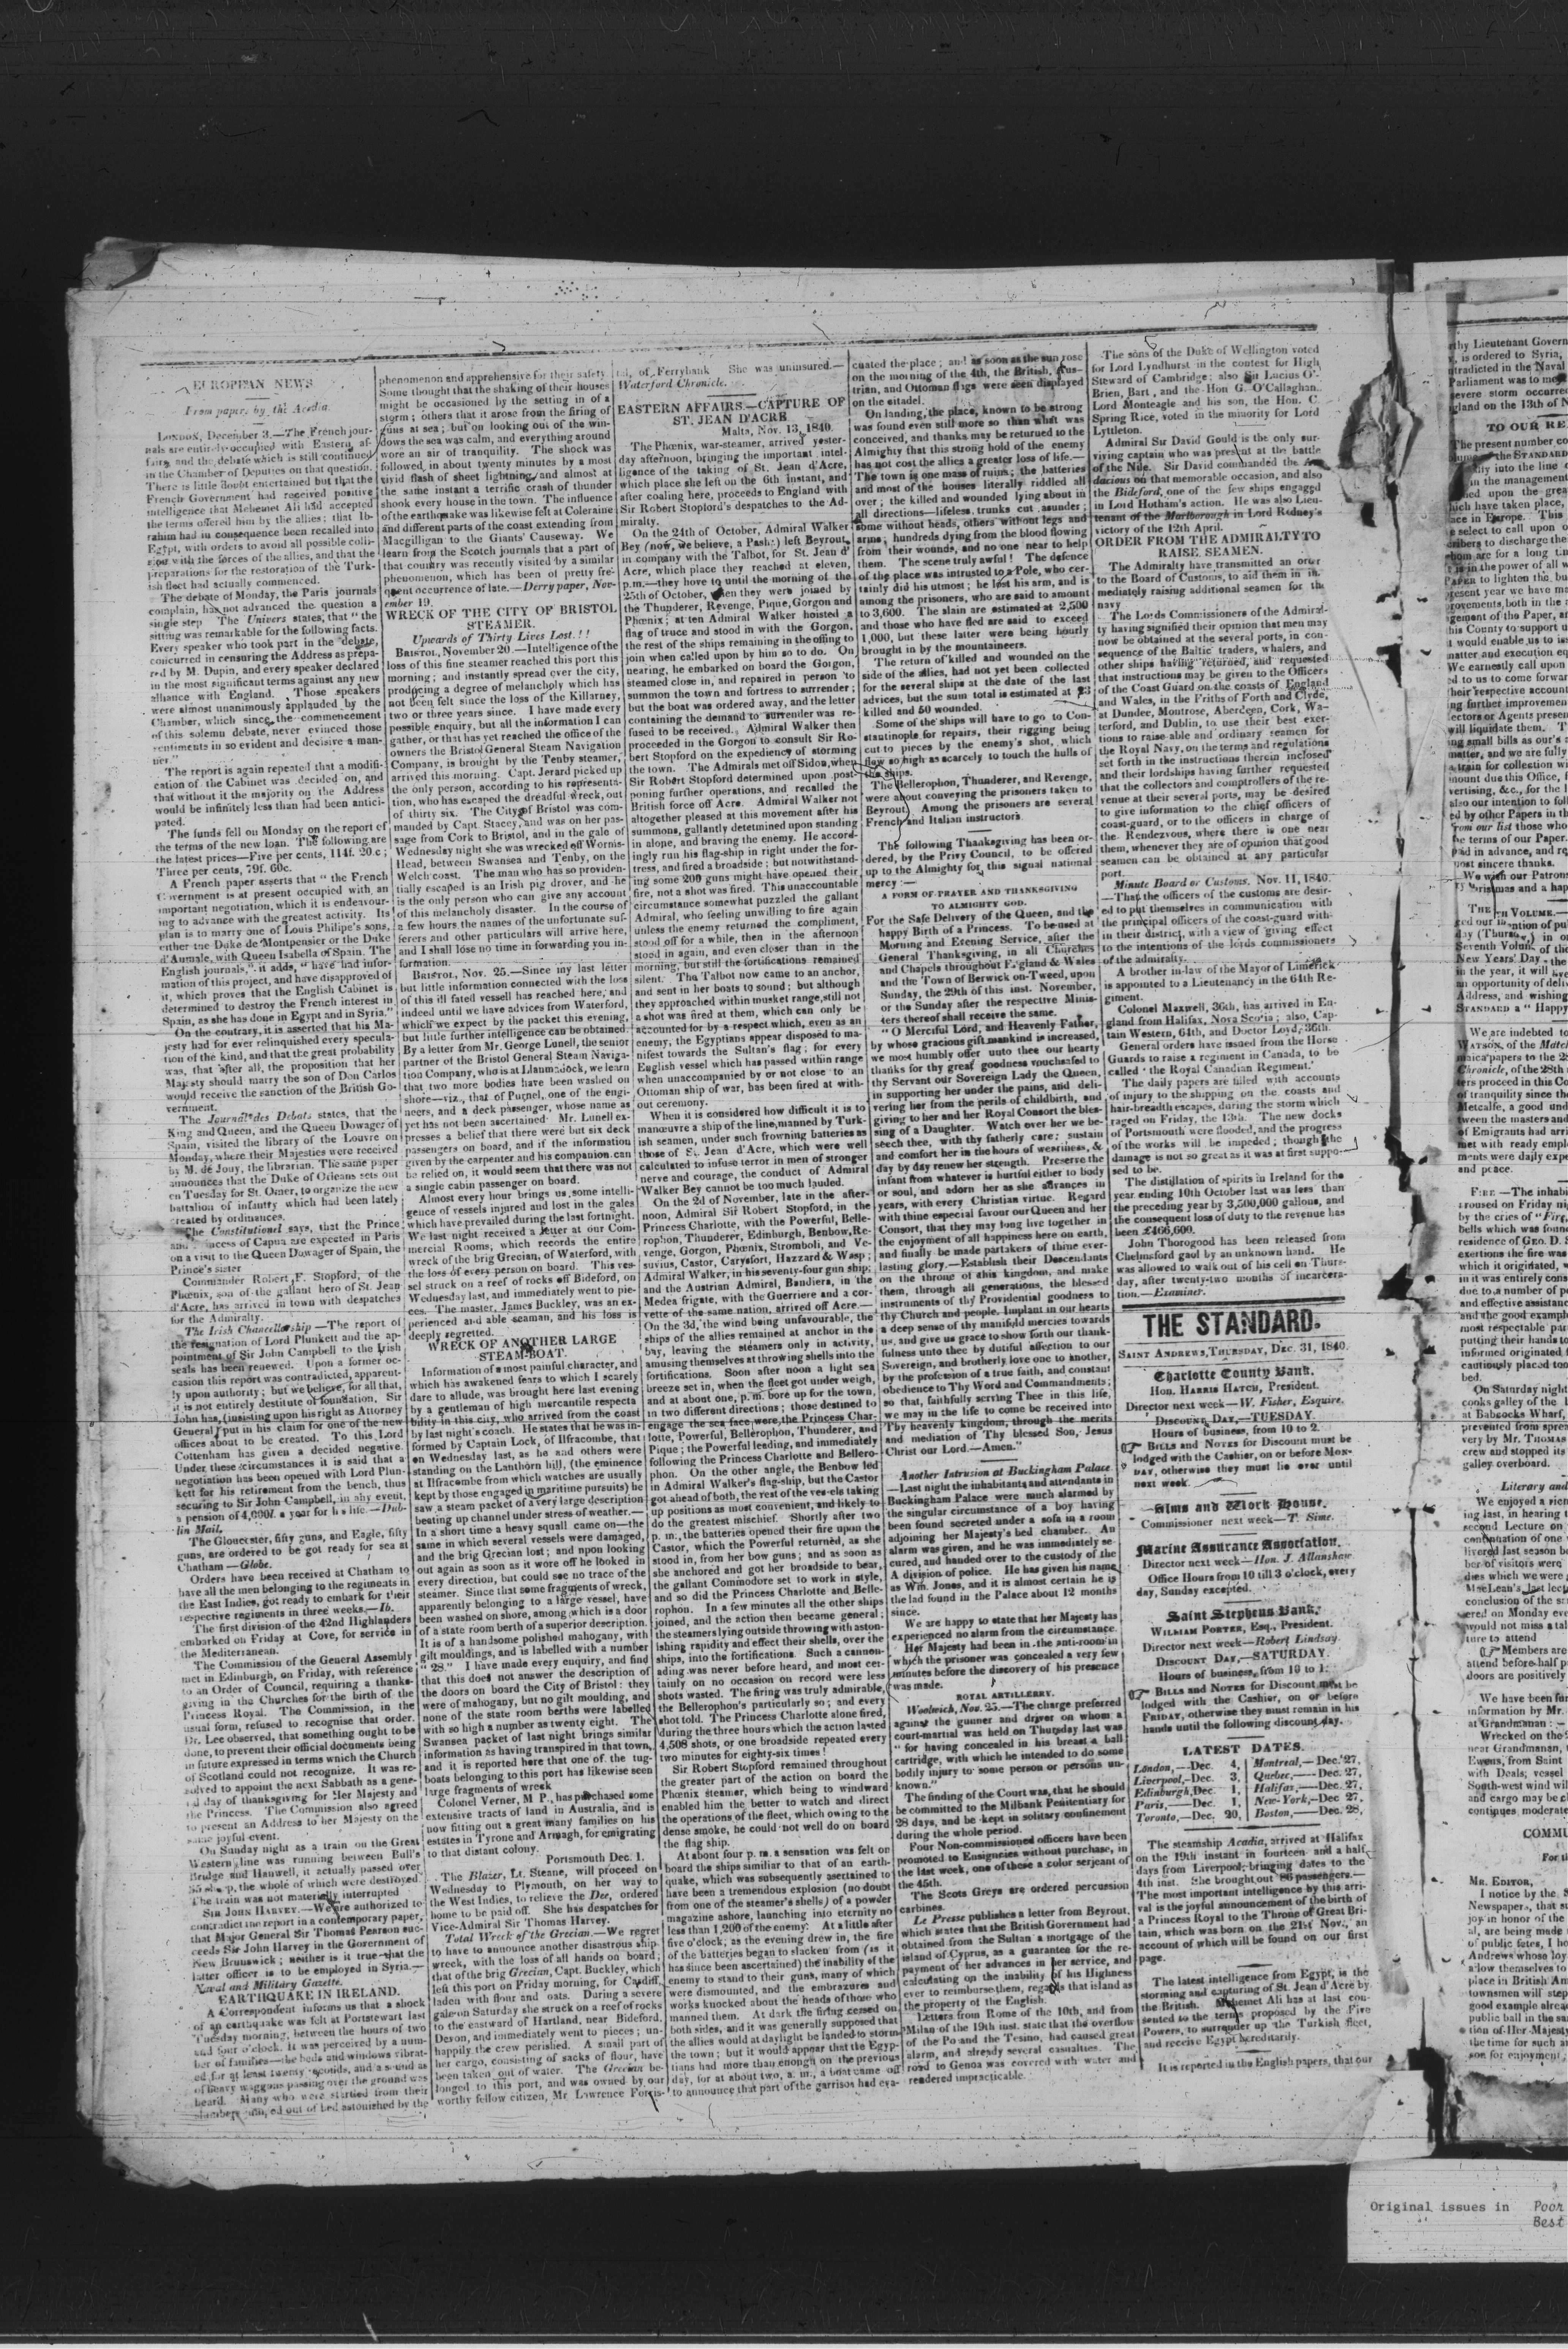 EUROPEAN NEWS
From papers by the Acadia.
LONDON, December 3.—The French jour-
nals are entirely occupied with Eastern af-
fairs, and the debate which is still continued
in the Chamber of Deputies on that question.
There is little doubt entertained but that the
French Government had received positive
intelligence that Mehemet Ali had accepted
the terms offered him by the allies; that Ib-
rahim had in consequence been recalled into
Egypt, with orders to avoid all possible colli-
sion with the forces of the allies, and that the
preparations for the restoration of the Turk-
ish fleet had actually commenced.
The debate of Monday, the Paris journals
complain, has not advanced the question a
single step. The Univers states, that "the
sitting was remarkable for the following facts.
Every speaker who took part in the debate,
concurred in censuring the Address as prepa-
red by M. Dupin, and every speaker declared
in the most significant terms against any new
alliance with England. Those speakers
were almost unanimously applauded by the
Chamber, which since the commencement
of this solemn debate, never evinced those
sentiments in so evident and decisive a man-
ner."
The report is again repeated that a modifi-
cation of the Cabinet was decided on, and
that without it the majority on the Address
would be infinitely less than had been antici-
pated.
The funds fell on Monday on the report of
the terms of the new loan. The following are
the latest prices—Five per cents, 114f. 20c;
Three per cents, 79f. 60c.
A French paper asserts that "the French
Government is at present occupied with an
important negotiation, which it is endeavour-
ing to advance with the greatest activity. Its
plan is to marry one of Louis Philipe's sons,
either the Duke de Montpensier or the Duke
d'Aumale, with Queen Isabella of Spain. The
English journals," it adds, "have had infor-
mation of this project, and have disapproved of
it, which proves that the English Cabinet is
determined to destroy the French interest in
Spain, as she has done in Egypt and in Syria."
On the contrary, it is asserted that his Ma-
jesty had for ever relinquished every specula-
tion of the kind, and that the great probability
was, that after all, the proposition that her
Majesty should marry the son of Don Carlos
would receive the sanction of the British Go-
vernment.
The Journal des Debats states, that the
King and Queen, and the Queen Dowager of
Spain, visited the library of the Louvre on
Monday, where their Majesties were received
by M. de Jouy, the librarian. The same paper
announces that the Duke of Orleans sets out
on Tuesday for St. Omer, to organize the new
battalion of infantry which had been lately
created by ordinances.
The Constitutionel says, that the Prince
and Princess of Capua are expected in Paris
on a visit to the Queen Dowager of Spain, the
Prince's sister
Commander Robert F. Stopford, of the
Phœnix, son of the gallant hero of St. Jean
d'Acre, has arrived in town with despatches
for the Admiralty.
The Irish Chancellorship—The report of
the resignation of Lord Plunkett and the ap-
pointment of Sir John Campbell to the Irish
seals has been renewed. Upon a former oc-
casion this report was contradicted, apparent-
ly upon authority; but we believe, for all that,
it is not entirely destitute of foundation. Sir
John has, (insisting upon his right as Attorney
General) put in his claim for one of the new
offices about to be created. To this Lord
Cottenham has given a decided negative.
Under these circumstances it is said that a
negotiation has been opened with Lord Plun-
kett for his retirement from the bench, thus
securing to Sir John Campbell, in any event,
a pension of 4,000l. a year for his life.—Dub-
lin Mail.
The Gloucester, fifty guns, and Eagle, fifty
guns, are ordered to be got ready for sea at
Chatham—Globe.
Orders have been received at Chatham to
have all the men belonging to the regiments in
the East Indies, got ready to embark for their
respective regiments in three weeks.—Ib.
The first division of the 42nd Highlanders
embarked on Friday at Cove, for service in
the Mediterranean.
The Commission of the General Assembly
met in Edinburgh, on Friday, with reference
to an Order of Council, requiring a thanks-
giving in the Churches for the birth of the
Princess Royal. The Commission, in the
usual form, refused to recognise that order.
Dr. Lee observed, that something ought to be
done, to prevent their official documents being
in future expressed in terms which the Church
of Scotland could not recognize. It was re-
solved to appoint the next Sabbath as a gene-
ral day of thanksgiving for Her Majesty and
the Princess. The Commission also agreed
to present an Address to her Majesty on the
same joyful event.
On Sunday night as a train on the Great
Western line was running between Bull's
Bridge and Hanwell, it actually passed over
35 sheep, the whole of which were destroyed.
The train was not materially interrupted
SIR JOHN HARVEY.—We are authorized to
contradict the report in a contemporary paper,
that Major General Sir Thomas Pearson suc-
ceeds Sir John Harvey in the Government of
New Brunswick; neither is it true that the
latter officer is to be employed in Syria.—
Naval and Military Gazette.
EARTHQUAKE IN IRELAND.
A Correspondent informs us that a shock
of an earthquake was felt at Portstewart last
Tuesday morning, between the hours of two
and four o'clock. It was perceived by a num-
ber of families—the beds and windows vibrat-
ed for at least twenty seconds, and a sound as
of heavy waggons passing over the ground was
heard. Many who were startled from their
slumbers, jumped out of bed astonished by the
phenomenon and apprehensive for their safety
Some thought that the shaking of their houses
might be occasioned by the setting in of a
storm; others that it arose from the firing of
guns at sea; but on looking out of the win-
dows the sea was calm, and everything around
wore an air of tranquility. The shock was
followed in about twenty minutes by a most
vivid flash of sheet lightning, and almost at
the same instant a terrific crash of thunder
shook every house in the town. The influence
of the earthquake was likewise felt at Coleraine
and different parts of the coast extending from
Macgilligan to the Giants' Causeway. We
learn from the Scotch journals that a part of
that country was recently visited by a similar
phenomenon, which has been of pretty fre-
quent occurrence of late.—Derry paper, Nov-
ember 19.
WRECK OF THE CITY OF BRISTOL
STEAMER.
Upwards of Thirty Lives Lost.!!
BRISTOL, November 20.—Intelligence of the
loss of this fine steamer reached this port this
morning; and instantly spread over the city,
producing a degree of melancholy which has
not been felt since the loss of the Killarney,
two or three years since. I have made every
possible enquiry, but all the information I can
gather, or that has yet reached the office of the
owners the Bristol General Steam Navigation
Company, is brought by the Tenby steamer,
arrived this morning. Capt. Jerard picked up
the only person, according to his representa-
tion, who has escaped the dreadful wreck, out
of thirty six. The City of Bristol was com-
manded by Capt. Stacey, and was on her pas-
sage from Cork to Bristol, and in the gale of
Wednesday night she was wrecked off Wornis-
Head, between Swansea and Tenby, on the
Welch coast. The man who has so providen-
tially escaped is an Irish pig drover, and he
is the only person who can give any account
of this melancholy disaster. In the course of
a few hours the names of the unfortunate suf-
ferers and other particulars will arrive here,
and I shall lose no time in forwarding you in-
formation.
BRISTOL, Nov. 25.—Since my last letter
but little information connected with the loss
of this ill fated vessell has reached here, and
indeed until we have advices from Waterford,
which we expect by the packet this evening,
but little further intelligence can be obtained.
By a letter from Mr. George Lunell, the senior
partner of the Bristol General Steam Naviga-
tion Company, who is at Llanmadock, we learn
that two more bodies have been washed on
shore—viz., that of Putnel, one of the engi-
neers, and a deck passenger, whose name as
yet has not been ascertained. Mr. Lunell ex-
presses a belief that there were but six deck
passengers on board, and if the information
given by the carpenter and his companion can
be relied on, it would seem that there was not
a single cabin passenger on board.
Almost every hour brings us some intelli-
gence of vessels injured and lost in the gales
which have prevailed during the last fortnight.
We last night received a letter at our Com-
mercial Rooms, which records the entire
wreck of the brig Grecian, of Waterford, with
the loss of every person on board. This ves-
sel struck on a reef of rocks off Bideford, on
Wednesday last, and immediately went to pie-
ces. The master, James Buckley, was an ex-
perienced and able seaman, and his loss is
deeply regretted.
WRECK OF ANOTHER LARGE
STEAM-BOAT.
Information of a most painful character, and
which has awakened fears to which I scarely
dare to allude, was brought here last evening
by a gentleman of high mercantile respecta
bility in this city, who arrived from the coast
by last night's coach. He states that he was in-
formed by Captain Lock, of Ilfracombe, that
on Wednesday last, as he and others were
standing on the Lanthorn hill, (the eminence
at Ilfracombe from which watches are usually
kept by those engaged in maritime pursuits) he
saw a steam packet of a very large description
beating up channel under stress of weather.—
In a short time a heavy squall came on—the
same in which several vessels were damaged,
and the brig Grecian lost; and upon looking
out again as soon as it wore off he looked in
every direction, but could see no trace of the
steamer. Since that some fragments of wreck,
apparently belonging to a large vessel, have
been washed on shore, among which is a door
of a state room berth of a superior description.
It is of a handsome polished mahogany, with
gilt mouldings, and is labelled with a number
"28." I have made every enquiry, and find
that this does not answer the description of
the doors on board the City of Bristol: they
were of mahogany, but no gilt moulding, and
none of the state room berths were labelled
with so high a number as twenty eight. The
Swansea packet of last night brings similar
information as having transpired in that town,
and it is reported here that one of the tug-
boats belonging to this port has likewise seen
large fragments of wreck
Colonel Verner, M P., has purchased some
extensive tracts of land in Australia, and is
now fitting out a great many families on his
estates in Tyrone and Armagh, for emigrating
to that distant colony.
Portsmouth Dec. 1.
The Blazer, Lt. Steane, will proceed on
Wednesday to Plymouth, on her way to
the West Indies, to relieve the Dee, ordered
home to be paid off. She has despatches for
Vice-Admiral Sir Thomas Harvey.
Total Wreck of the Grecian.—We regret
to have to announce another disastrous ship-
wreck, with the loss of all hands on board;
that of the brig Grecian, Capt. Buckley, which
left this port on Friday morning, for Cardiff,
laden with flour and oats. During a severe
gale on Saturday she struck on a reef of rocks
to the eastward of Hartland, near Bideford,
Devon, and immediately went to pieces; un-
happily the crew perished. A small part of
her cargo, consisting of sacks of flour, have
been taken out of water. The Grecian be-
longed to this port, and was owned by our
worthy fellow citizen, Mr. Lawrence Forris-
tal, of Ferrybank She was uninsured.—
Waterford Chronicle.
EASTERN AFFAIRS.—CAPTURE OF
ST. JEAN D'ACRE
Malta, Nov. 13, 1840.
The Phœnix, war-steamer, arrived yester-
day afternoon, bringing the important intel-
ligence of the taking of St. Jean d'Acre,
which place she left on the 6th instant, and
after coaling here, proceeds to England with
Sir Robert Stopford's despatches to the Ad-
miralty.
On the 24th of October, Admiral Walker
Bey (now, we believe, a Pasha) left Beyrout,
in company with the Talbot, for St. Jean d'
Acre, which place they reached at eleven,
p.m.—they hove to until the morning of the
25th of October, when they were joined by
the Thunderer, Revenge, Pique, Gorgon and
Phœnix; at ten Admiral Walker hoisted a
flag of truce and stood in with the Gorgon,
the rest of the ships remaining in the offing to
join when called upon by him so to do. On
nearing, he embarked on board the Gorgon,
steamed close in, and repaired in person to
summon the town and fortress to surrender;
but the boat was ordered away, and the letter
containing the demand to surrender was re-
fused to be received. Admiral Walker then
proceeded in the Gorgon to consult Sir Ro-
bert Stopford on the expediency of storming
the town. The Admirals met off Sidon, when
Sir Robert Stopford determined upon post-
poning further operations, and recalled the
British force off Acre. Admiral Walker not
altogether pleased at this movement after his
summons, gallantly detetmined upon standing
in alone, and braving the enemy. He accord-
ingly run his flag-ship in right under the for-
tress, and fired a broadside; but notwithstand-
ing some 200 guns might have opened their
fire, not a shot was fired. This unaccountable
circumstance somewhat puzzled the gallant
Admiral, who feeling unwilling to fire again
unless the enemy returned the compliment,
stood off for a while, then in the afternoon
stood in again, and even closer than in the
morning, but still the fortifications remained
silent. The Talbot now came to an anchor,
and sent in her boats to sound; but although
they approached within musket range, still not
a shot was fired at them, which can only be
accounted for by a respect which, even as an
enemy, the Egyptians appear disposed to ma-
nifest towards the Sultan's flag; for every
English vessel which has passed within range
when unaccompanied by or not close to an
Ottoman ship of war, has been fired at with-
out ceremony.
When it is considered how difficult it is to
manœuvre a ship of the line, manned by Turk-
ish seamen, under such frowning batteries as
those of St. Jean d'Acre, which were well
calculated to infuse terror in men of stronger
nerve and courage, the conduct of Admiral
Walker Bey cannot be too much lauded.
On the 2d of November, late in the after-
noon, Admiral Sir Robert Stopford, in the
Princess Charlotte, with the Powerful, Belle-
rophon, Thunderer, Edinburgh, Benbow, Re-
venge, Gorgon, Phœnix, Stromboli, and Ve-
suvius, Castor, Carysfort, Hazzard & Wasp;
Admiral Walker, in his seventy-four gun ship;
and the Austrian Admiral, Bandiera, in the
Medea frigate, with the Guerriere and a cor-
vette of the same nation, arrived off Acre.—
On the 3d, the wind being unfavourable, the
ships of the allies remained at anchor in the
bay, leaving the steamers only in activity,
amusing themselves at throwing shells into the
fortifications. Soon after noon a light sea
breeze set in, when the fleet got under weigh,
and at about one, p. m. bore up for the town,
in two different directions; those destined to
engage the sea face were the Princess Char-
lotte, Powerful, Bellerophon, Thunderer, and
Pique; the Powerful leading, and immediately
following the Princess Charlotte and Bellero-
phon. On the other angle, the Benbow led
in Admiral Walker's flag-ship, but the Castor
got ahead of both, the rest of the vessels taking
up positions as most convenient, and likely to
do the greatest mischief. Shortly after two
p. m., the batteries opened their fire upon the
Castor, which the Powerful returned, as she
stood in, from her bow guns; and as soon as
she anchored and got her broadside to bear,
the gallant Commodore set to work in style,
and so did the Princess Charlotte and Belle-
rophon. In a few minutes all the other ships
joined, and the action then became general;
the steamers lying outside throwing with aston-
ishing rapidity and effect their shells, over the
ships, into the fortifications. Such a cannon-
ading was never before heard, and most cer-
tainly on no occasion on record were less
shots wasted. The firing was truly admirable,
the Bellerophon's particularly so; and every
shot told. The Princess Charlotte alone fired,
during the three hours which the action lasted
4,508 shots, or one broadside repeated every
two minutes for eighty-six times!
Sir Robert Stopford remained throughout
the greater part of the action on board the
Phœnix steamer, which being to windward
enabled him the better to watch and direct
the operations of the fleet, which owing to the
dense smoke, he could not well do on board
the flag ship.
At about four p. m. a sensation was felt on
board the ships similiar to that of an earth-
quake, which was subsequently asertained to
have been a tremendous explosion (no doubt
from one of the steamer's shells) of a powder
magazine ashore, launching into eternity no
less than 1,200 of the enemy. At a little after
five o'clock, as the evening drew in, the fire
of the batteries began to slacken from (as it
has since been ascertained) the inability of the
enemy to stand to their guns, many of which
were dismounted, and the embrazures and
works knocked about the heads of those who
manned them. At dark the firing ceased on
both sides, and it was generally supposed that
the allies would at daylight be landed to storm
the town; but it would appear that the Egyp-
tians had more than enough on the previous
day, for at about two, a. m., a boat came off
to announce that part of the garrison had eva-
cuated the place; and as soon as the sun rose
on the morning of the 4th, the British, Aus-
trian, and Ottoman flags were seen displayed
on the citadel.
On landing, the place, known to be strong
was found even still more so than what was
conceived, and thanks may be returued to the
Almighty that this strong hold of the enemy
has not cost the allies a greater loss of life.—
The town is one mass of ruins; the batteries
and most of the houses literally riddled all
over; the killed and wounded lying about in
all directions—lifeless trunks cut asunder;
some without heads, others without legs and
arms; hundreds dying from the blood flowing
from their wounds, and no one near to help
them. The scene truly awful! The defence
of the place was intrusted to a Pole, who cer-
tainly did his utmost; he lost his arm, and is
among the prisoners, who are said to amount
to 3,600. The slain are estimated at 2,500
and those who have fled are said to exceed
1,000, but these latter were being hourly
brought in by the mountaineers.
The return of killed and wounded on the
side of the allies, had not yet been collected
for the several ships at the date of the last
advices, but the sum total is estimated at 23
killed and 50 wounded.
Some of the ships will have to go to Con-
stantinople for repairs, their rigging being
cut to pieces by the enemy's shot, which
flew so high as scarcely to touch the hulls of
the ships.
The Bellerophon, Thunderer, and Revenge,
were about conveying the prisoners taken to
Beyrout. Among the prisoners are several
French and Italian instructors.
The following Thanksgiving has been or-
dered, by the Privy Council, to be offered
up to the Almighty for this signal national
mercy:—
A FORM OF PRAYER AND THANKSGIVING
TO ALMIGHTY GOD.
For the Safe Delivery of the Queen, and the
happy Birth of a Princess. To be used at
Morning and Evening Service, after the
General Thanksgiving, in all Churches
and Chapels throughout England & Wales
and the Town of Berwick on-Tweed, upon
Sunday, the 29th of this inst. November,
or the Sunday after the respective Minis-
ters thereof shall receive the same.
"O Merciful Lord, and Heavenly Father,
by whose gracious gift mankind is increased,
we most humbly offer unto thee our hearty
thanks for thy great goodness vouchsafed to
thy Servant our Sovereign Lady the Queen,
in supporting her under the pains, and deli-
vering her from the perils of childbirth, and
giving to her and her Royal Consort the bles-
sing of a Daughter. Watch over her we be-
seech thee, with thy fatherly care; sustain
and comfort her in the hours of weariness, &
day by day renew her strength. Preserve the
infant from whatever is hurtful either to body
or soul, and adorn her as she advances in
years, with every Christian virtue. Regard
with thine especial favour our Queen and her
Consort, that they may long live together in
the enjoyment of all happiness here on earth,
and finally be made partakers of thine ever-
lasting glory.—Establish their Descendants
on the throne of this kingdom, and make
them, through all generations, the blessed
instruments of thy Providential goodness to
thy Church and people. Implant in our hearts
a deep sense of thy manifold mercies towards
us, and give us grace to show forth our thank-
fulness unto thee by dutiful affection to our
Sovereign, and brotherly love one to another,
by the profession of a true faith, and constant
obedience to Thy Word and Commandments;
so that, faithfully serving Thee in this life,
we may in the life to come be received into
Thy heavenly kingdom, through the merits
and mediation of Thy blessed Son, Jesus
Christ our Lord.—Amen."
Another Intrusion at Buckingham Palace
—Last night the inhabitants and attendants in
Buckingham Palace were much alarmed by
the singular circumstance of a boy having
been found secreted under a sofa in a room
adjoining her Majesty's bed chamber. An
alarm was given, and he was immediately se-
cured, and handed over to the custody of the
A division of police. He has given his name
as Wm. Jones, and it is almost certain he is
the lad found in the Palace about 12 months
since.
We are happy to state that her Majesty has
experienced no alarm from the circumstance.
Her Majesty had been in the anti-room in
which the prisoner was concealed a very few
minutes before the discovery of his presence
was made.
ROYAL ARTILLERY.
Woolwich, Nov. 25.—The charge preferred
against the gunner and driver on whom a
court-martial was held on Thursday last was
"for having concealed in his breast a ball
cartridge, with which he intended to do some
bodily injury to some person or persons un-
known."
The finding of the Court was, that he should
be committed to the Milbank Penitentiary for
28 days, and be kept in solitary confinement
during the whole period.
Four Non-commissioned officers have been
promoted to Ensigncies without purchase, in
the last week, one of these a color serjeant of
the 45th.
The Scots Greys are ordered percussion
carbines.
Le Presse publishes a letter from Beyrout,
which states that the British Government had
obtained from the Sultan a mortgage of the
island of Cyprus, as a guarantee for the re-
payment of her advances in her service, and
calculating on the inability of his Highness
ever to reimburse them, regards that island as
the property of the English.
Letters from Rome of the 10th, and from
Milan of the 19th inst. state that the overflow
of the Po and the Tesino, had caused great
alarm, and already several casualties. The
road to Genoa was covered with water and
rendered impracticable.
The sons of the Duke of Wellington voted
for Lord Lyndhurst in the contest for High
Steward of Cambridge; also Sir Lucius O'-
Brien, Bart, and the Hon G. O'Callaghan.
Lord Monteagle and his son, the Hon. C.
Spring Rice, voted in the minority for Lord
Lyttleton.
Admiral Sir David Gould is the only sur-
viving captain who was present at the battle
of the Nile. Sir David commanded the Au-
dacious on that memorable occasion, and also
the Bideford, one of the few ships engaged
in Lord Hotham's action. He was also Lieu-
tenant of the Marlborough in Lord Rodney's
victory of the 12th April.
ORDER FROM THE ADMIRALTY TO
RAISE SEAMEN.
The Admiralty have transmitted an order
to the Board of Customs, to aid them in im-
mediately raising additional seamen for the
navy
The Lords Commissioners of the Admiral-
ty having signified their opinion that men may
now be obtained at the several ports, in con-
sequence of the Baltic traders, whalers, and
other ships having returned, and requested
that instructions may be given to the Officers
of the Coast Guard on the coasts of England
and Wales, in the Friths of Forth and Clyde,
at Dundee, Montrose, Aberdeen, Cork, Wa-
terford, and Dublin, to use their best exer-
tions to raise able and ordinary seamen for
the Royal Navy, on the terms and regulations
set forth in the instructions therein inclosed
and their lordships having further requested
that the collectors and comptrollers of the re-
venue at their several ports, may be desired
to give information to the chief officers of
coast-guard, or to the officers in charge of
the Rendezvous, where there is one near
them, whenever they are of opinion that good
seamen can be obtained at any particular
port.
Minute Board or Customs, Nov. 11, 1840.
—That the officers of the customs are desir-
ed to put themselves in communication with
the principal officers of the coast-guard with-
in their district, with a view of giving effect
to the intentions of the lords commissioners
of the admiralty.
A brother in-law of the Mayor of Limerick
is appointed to a Lieutenancy in the 64th Re-
giment.
Colonel Maxwell, 36th, has arrived in En-
gland from Halifax, Nova Scotia; also, Cap-
tain Western, 64th, and Doctor Loyd, 36th.
General orders have issued from the Horse
Guards to raise a regiment in Canada, to be
called 'the Royal Canadian Regiment.'
The daily papers are filled with accounts
of injury to the shipping on the coasts and
hair-breadth escapes, during the storm which
raged on Friday, the 13th. The new docks
of Portsmouth were flooded, and the progress
of the works will be impeded; though the
damage is not so great as it was at first suppo-
sed to be.
The distillation of spirits in Ireland for the
year ending 10th October last was less than
the preceding year by 3,500,000 gallons, and
the consequent loss of duty to the revenue has
been £466,600.
John Thorogood has been released from
Chelmsford gaol by an unknown hand. He
was allowed to walk out of his cell on Thurs-
day, after twenty-two months of incarcera-
tion.—Examiner.
THE STANDARD.
SAINT ANDREWS, THURSDAY, DEC. 31, 1840.
Charlotte County Bank.
Hon. HARRIS HATCH, President.
Director next week—W. Fisher, Esquire.
DISCOUNT DAY,—TUESDAY.
Hours of business, from 10 to 2.
BILLS and NOTES for Discount must be
lodged with the Cashier, on or before MON-
DAY, otherwise they must lie over until
next week.
Alms and Work House.
Commissioner next week—T. Sime.
Marine Assurance Association.
Director next week—Hon. J. Allanshaw
Office Hours from 10 till 3 o'clock, every
day, Sunday excepted.
Saint Stephens Bank.
WILLIAM PORTER, Esq., President.
Director next week—Robert Lindsay.
DISCOUNT DAY,—SATURDAY.
Hours of business, from 10 to 1.
BILLS and NOTES for Discount must be
lodged with the Cashier, on or before
FRIDAY, otherwise they must remain in his
hands until the following discount day.
LATEST DATES.
London,—Dec. 4, Montreal,—Dec. 27,
Liverpool,—Dec. 3, Quebec,—Dec. 27,
Edinburgh, Dec. 1, Halifax,—Dec. 27,
Paris,—Dec. 1, New-York,—Dec 27,
Toronto,—Dec. 20, Boston,—Dec. 28,
The steamship Acadia, arrived at Halifax
on the 19th instant in fourteen and a half
days from Liverpool, bringing dates to the
4th inst. She brought out 86 passengers.—
The most important intelligence by this arri-
val is the joyful announcement of the birth of
a Princess Royal to the Throne of Great Bri-
tain, which was born on the 21st Nov., an
account of which will be found on our first
page.
The latest intelligence from Egypt, is the
storming and capturing of St. Jean d'Acre by
the British. Mehemet Ali has at last con-
sented to the terms proposed by the Five
Powers, to surrender up the Turkish fleet,
and receive Egypt hereditarily.
It is reported in the English papers, that our
Original issues in Poor
Best